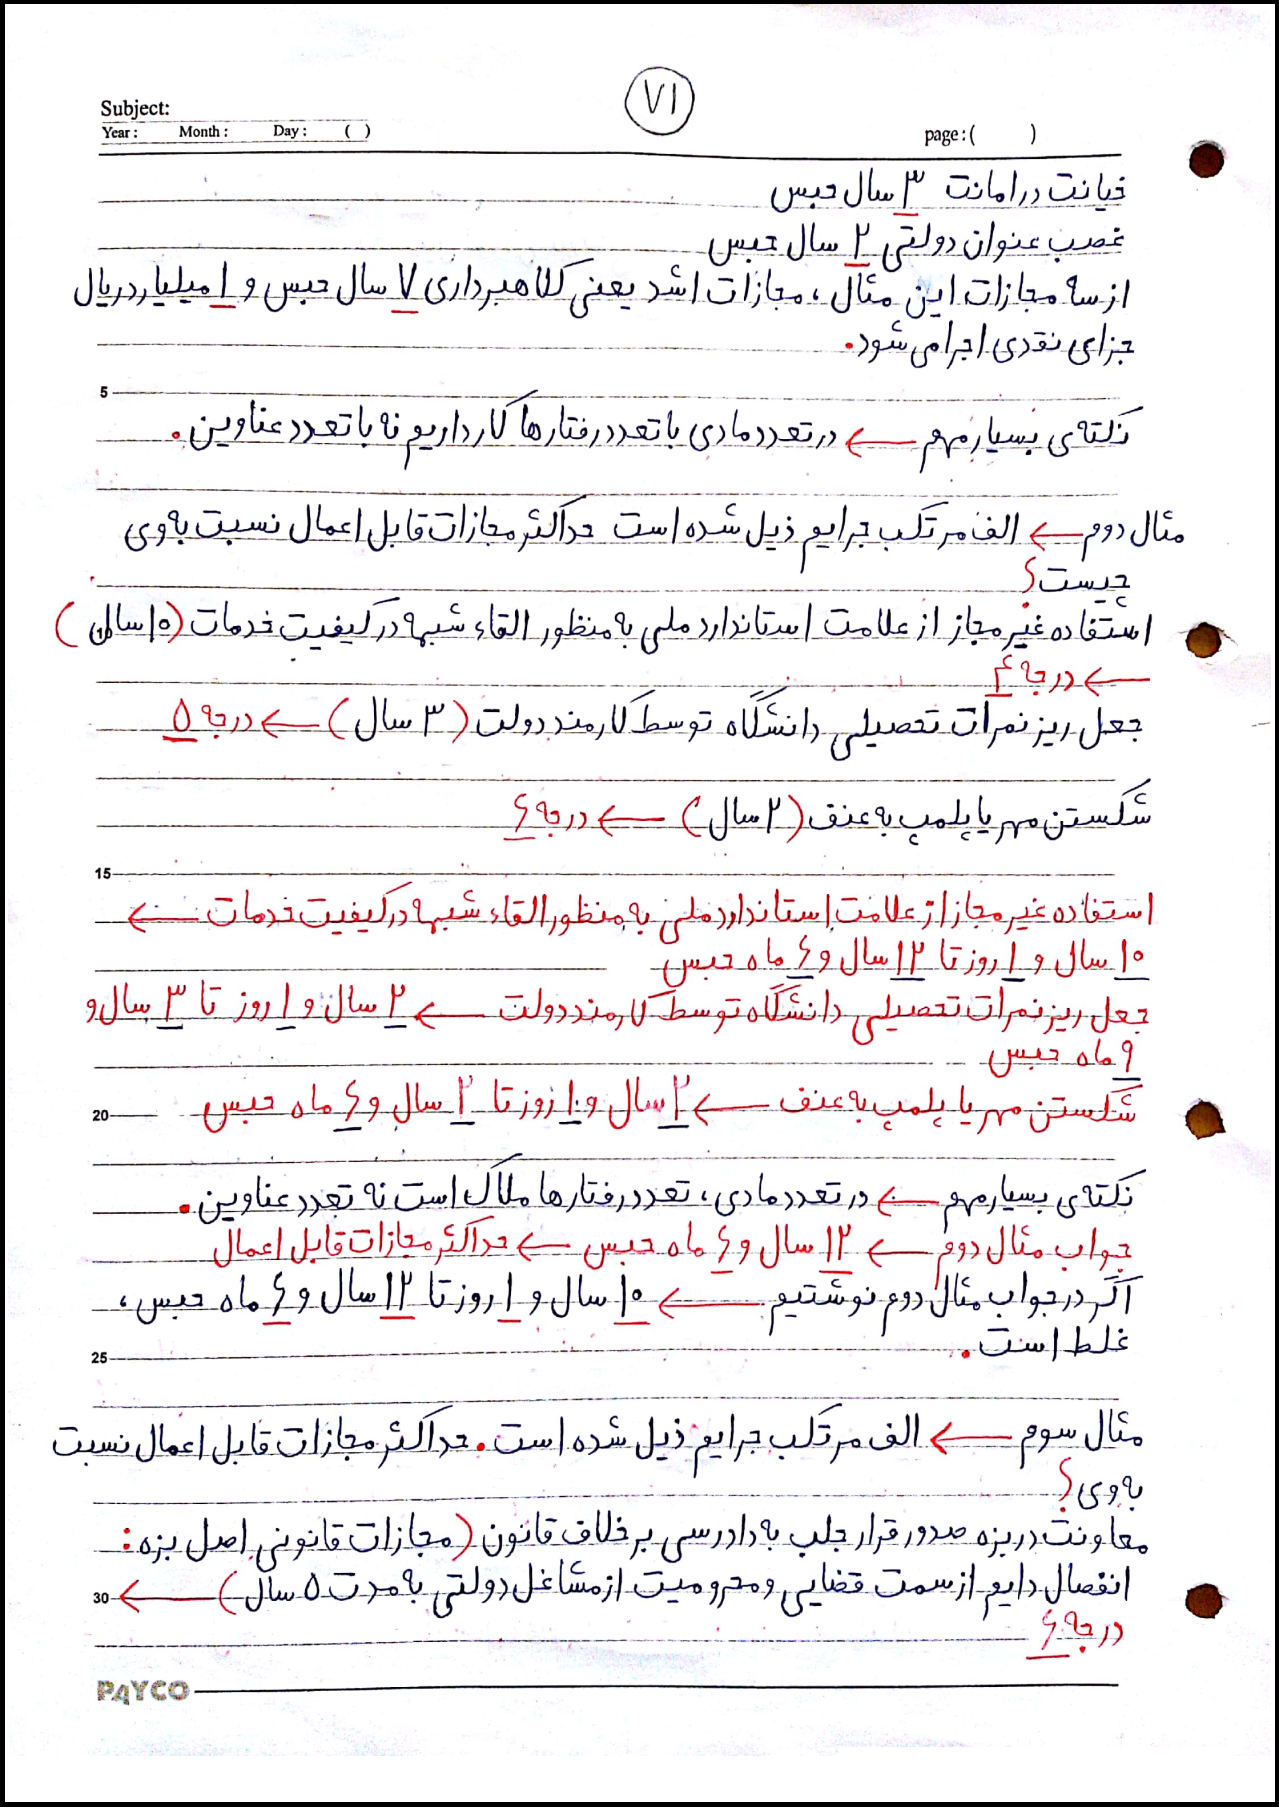 ۷۱
Subject:
Year : Month : Day : ( )
page : ( )
خیانت در امانت ۳ سال حبس
غصب عنوان دولتی ۲ سال حبس
از سه مجازات این مثال ، مجازات اشد یعنی کلاهبرداری ۷ سال حبس و ۱ میلیارد ریال
جزای نقدی اجرا می شود.
5
نکته ی بسیار مهم ← در تعدد مادی با تعدد رفتارها کار داریم نه با تعدد عناوین.
مثال دوم ← الف مرتکب جرایم ذیل شده است حداکثر مجازات قابل اعمال نسبت به وی
چیست؟
استفاده غیر مجاز از علامت استاندارد ملی به منظور القاء شبهه در کیفیت خدمات (۱۰ سال)
← درجه ۴
جعل ریز نمرات تحصیلی دانشگاه توسط کارمند دولت (۳ سال) ← درجه ۵
شکستن مهر یا پلمپ به عنف (۲ سال) ← درجه ۶
15
استفاده غیر مجاز از علامت استاندارد ملی به منظور القاء شبهه در کیفیت خدمات ←
۱۰ سال و ۱ روز تا ۱۲ سال و ۶ ماه حبس
جعل ریز نمرات تحصیلی دانشگاه توسط کارمند دولت ← ۲ سال و ۱ روز تا ۳ سال و
۹ ماه حبس
20
شکستن مهر یا پلمپ به عنف ← ۲ سال و ۱ روز تا ۲ سال و ۶ ماه حبس
نکته ی بسیار مهم ← در تعدد مادی ، تعدد رفتارها ملاک است نه تعدد عناوین.
جواب مثال دوم ← ۱۲ سال و ۶ ماه حبس ← حداکثر مجازات قابل اعمال
اگر در جواب مثال دوم نوشتیم ← ۱۰ سال و ۱ روز تا ۱۲ سال و ۶ ماه حبس ،
غلط است.
25
مثال سوم ← الف مرتکب جرایم ذیل شده است. حداکثر مجازات قابل اعمال نسبت
به وی؟
معاونت در بزه صدور قرار جلب به دادرسی بر خلاف قانون (مجازات قانونی اصل بزه :
انفصال دایم از سمت قضایی و محرومیت از مشاغل دولتی به مدت ۵ سال) ←
30
درجه ۶
PAYCO